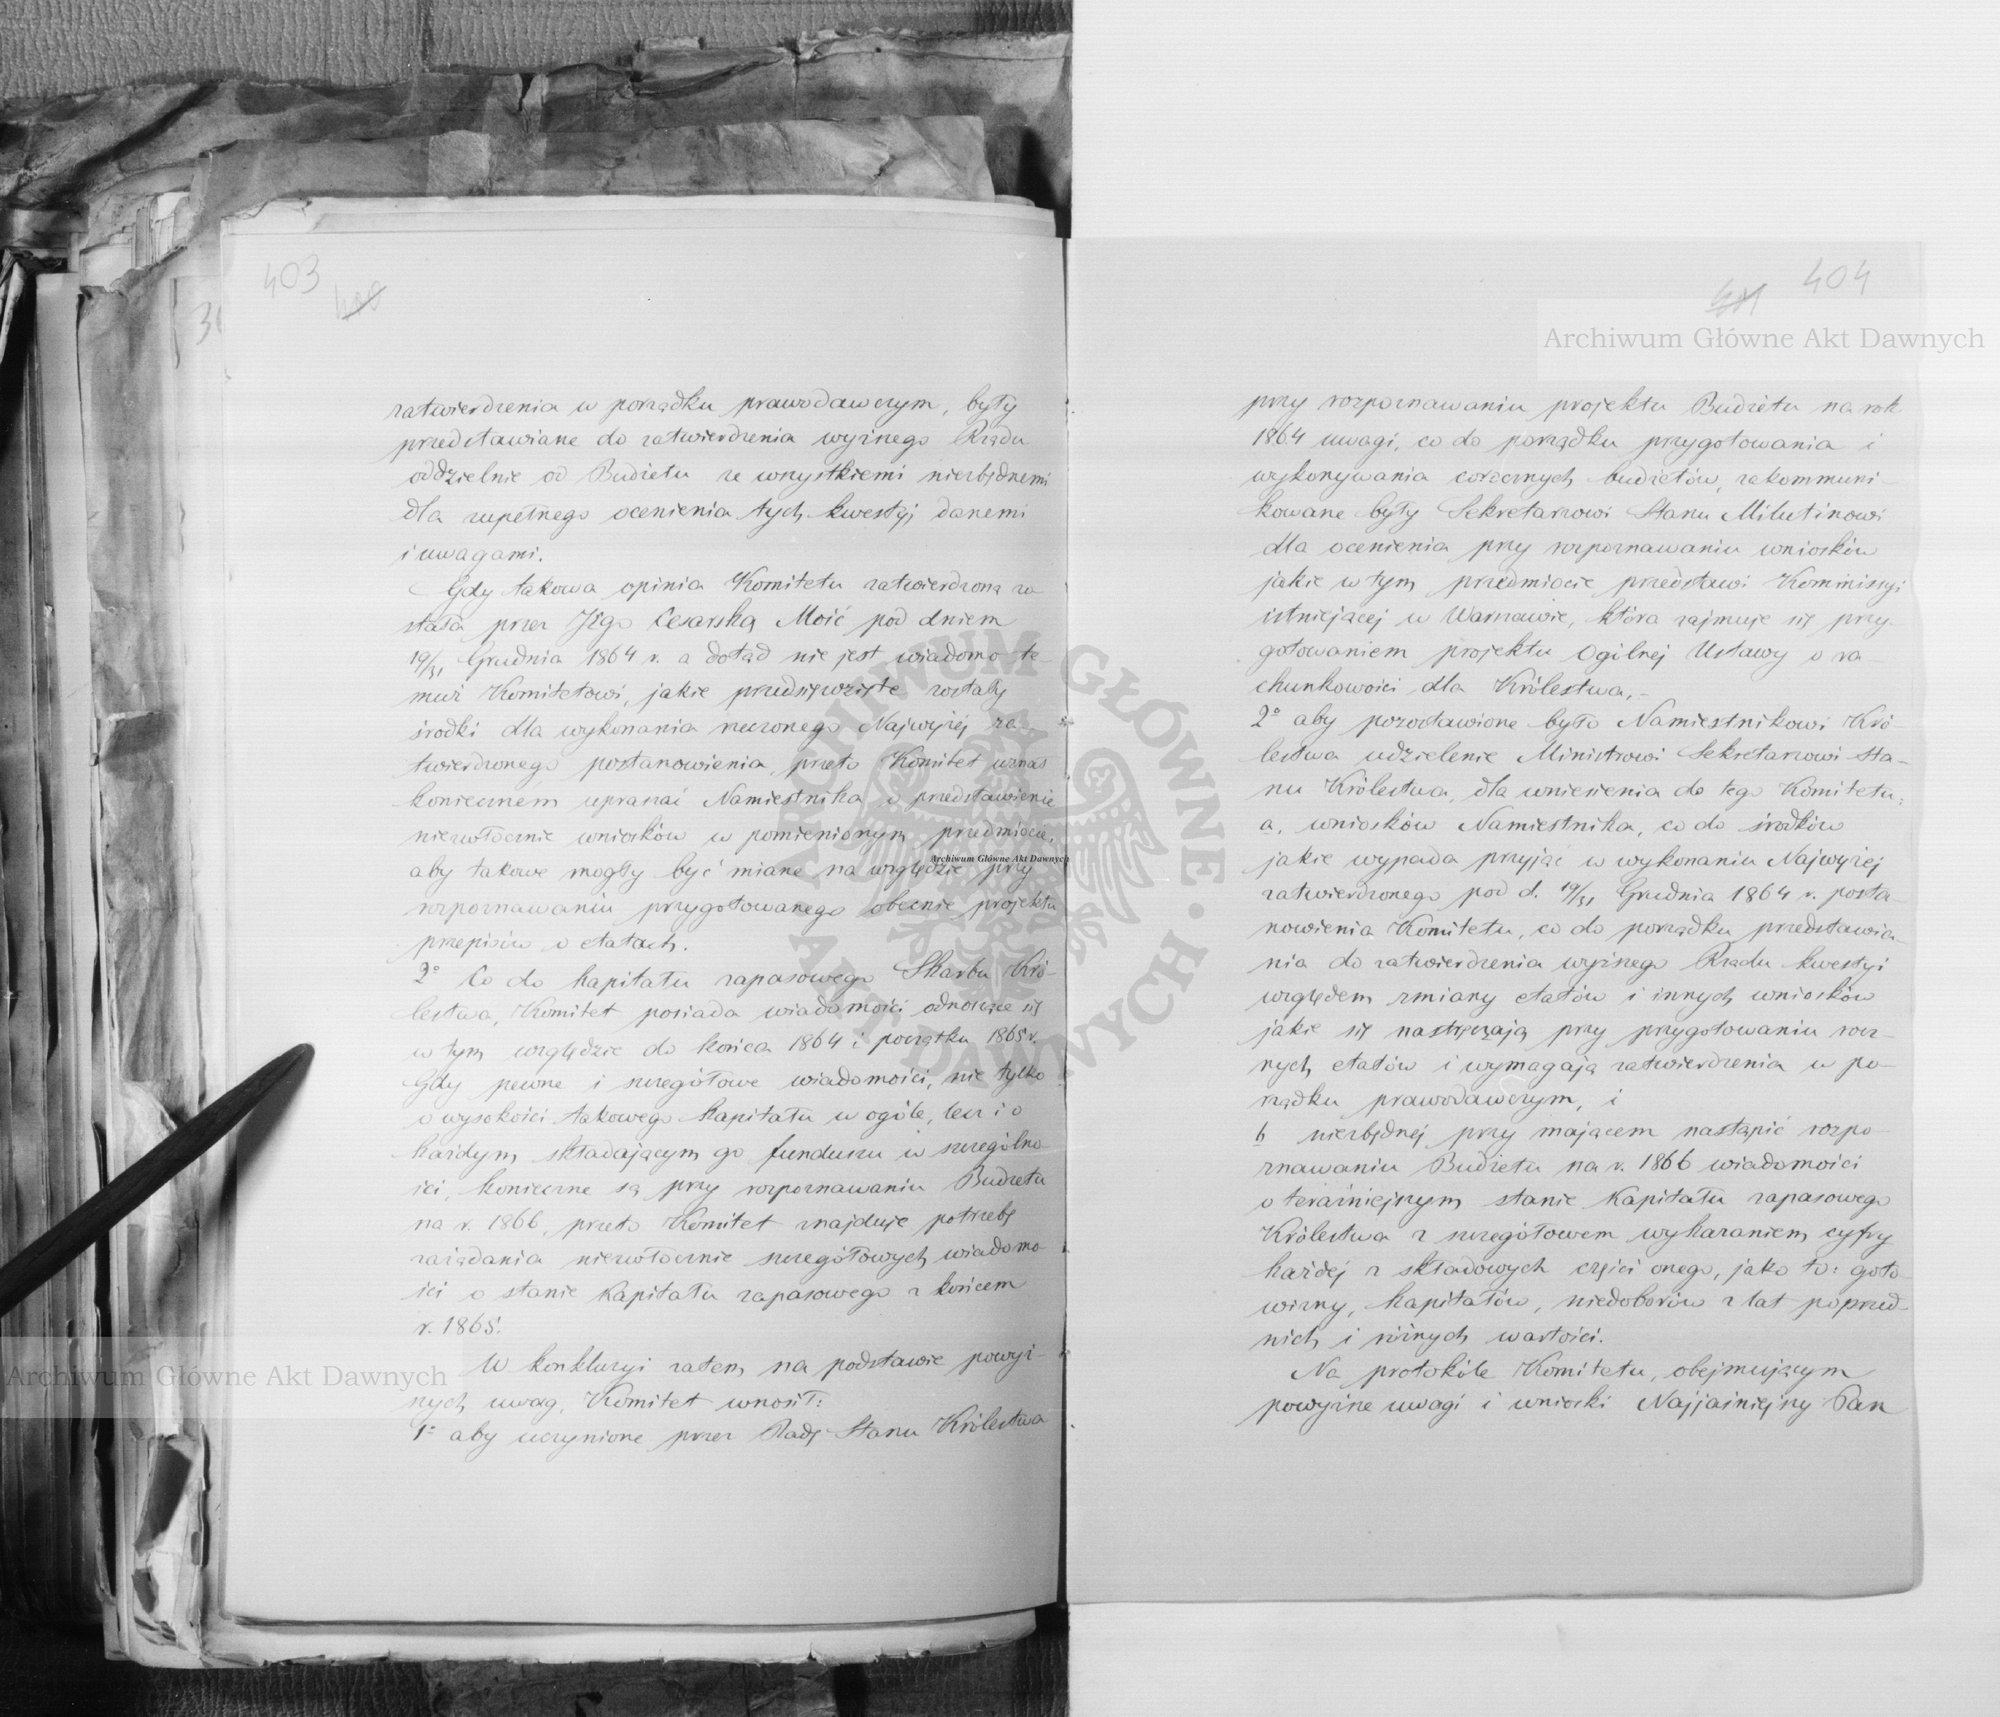 403
400
zatwierdzenia w porządku prawodawczym, były
przedstawiane do zatwierdzenia wyższego Rządu
oddzielnie od Budżetu ze wszystkiemi niezbędnemi
dla zupełnego ocenienia tych kwestyj danemi
i uwagami.
Gdy takowa opinia Komitetu zatwierdzoną zo-
stała przez Jego Cesarską Mość pod dniem
19/31 Grudnia 1864 r. a dotąd nie jest wiadomo te-
muż Komitetowi, jakie przedsięwzięte zostały
środki dla wykonania rzeczonego Najwyżej za-
twierdzonego postanowienia, przeto Komitet uznał
koniecznem upraszać Namiestnika o przedstawienie
niezwłocznie wniosków w pomienionym przedmiocie,
aby takowe mogły być miane na względzie przy
rozpoznawaniu przygotowanego obecnie projektu
przepisów o etatach.
2° Co do kapitału zapasowego Skarbu Kró-
lestwa, Komitet posiada wiadomości odnoszące się
w tym względzie do końca 1864 i początku 1865 r.
Gdy pewne i szczegółowe wiadomości, nie tylko
o wysokości takowego kapitału w ogóle, lecz i o
każdym składającym go funduszu w szczególno-
ści, konieczne są przy rozpoznawaniu Budżetu
na r. 1866, przeto Komitet znajduje potrzebę
zażądania niezwłocznie szczegółowych wiadomo-
ści o stanie kapitału zapasowego z końcem
r. 1865.
W konkluzyi zatem na podstawie powyż-
szych uwag, Komitet wnosił:
1° aby uczynione przez Radę Stanu Królestwa
404
401
przy rozpoznawaniu projektu Budżetu na rok
1864 uwagi, co do porządku przygotowania i
wykonywania corocznych budżetów, zakommuni-
kowane były Sekretarzowi Stanu Milutinowi
dla ocenienia przy rozpoznawaniu wniosków
jakie w tym przedmiocie przedstawi Kommissyi
istniejącej w Warszawie, która zajmuje się przy-
gotowaniem projektu Ogólnej Ustawy o ra-
chunkowości dla Królestwa,-
2° aby pozostawione było Namiestnikowi Kró-
lestwa udzielenie Ministrowi Sekretarzowi Sta-
nu Królestwa, dla wniesienia do tego Komitetu:
a, wniosków Namiestnika, co do środków
jakie wypada przyjąć w wykonaniu Najwyżej
zatwierdzonego pod d. 19/31 Grudnia 1864 r. posta-
nowienia Komitetu, co do porządku przedstawia-
nia do zatwierdzenia wyższego Rządu kwestyi
względem zmiany etatów i innych wniosków
jakie się nastręczają przy przygotowaniu rocz-
nych etatów i wymagają zatwierdzenia w po-
rządku prawodawczym, i
b niezbędnej przy mającem nastąpić rozpo-
znawaniu Budżetu na r. 1866 wiadomości
o teraźniejszym stanie kapitału zapasowego
Królestwa z szczegółowem wykazaniem cyfry
każdej z składowych części onego, jako to: goto-
wizny, kapitałów, niedoborów z lat poprzed-
nich i różnych wartości.
Na protokóle Komitetu, obejmującym
powyższe uwagi i wnioski Najjaśniejszy Pan
Archiwum Główne Akt Dawnych
Archiwum Główne Akt Dawnych
Archiwum Główne Akt Dawnych
ARCHIWUM GŁÓWNE • AKT DAWNYCH •